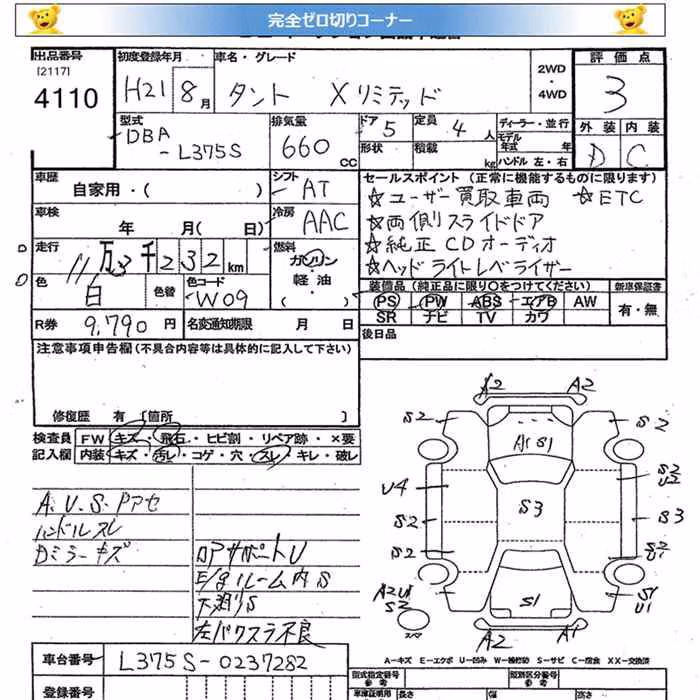 完全ゼロ切りコーナー
出品番号 初度登録年月 車名・グレード 2WD・4WD 評価点
[2117]
4110 H21 8月 タント Xリミテッド 3
型式 排気量 ドア 定員 ディーラー・並行 外装 内装
DBA 5 4人 モデル年式 年式
-L375S 660cc 形状 積載 kg ハンドル 左・右 D C
車歴 シフト セールスポイント (正常に機能するものに限ります)
自家用・( ) AT ☆ユーザー買取車両 ☆ETC
車検 冷房 ☆両側スライドドア
年 月( 日) AAC ☆純正CDオーディオ
走行 燃料 ☆ヘッドライトレベライザー
11万3千232km ガソリン・軽油・( )
色 色替 色コード 装備品(純正品に限り〇をつけてください) 新車保証書
白 W09 PS PW ABS エアB AW 有・無
SR ナビ TV カワ
R券 9,790円 名変通知期限 月 日 後日品
注意事項申告欄(不具合内容等は具体的に記入して下さい)
修復歴 有 [箇所 ]
検査員 FW キズ・飛石・ヒビ割・リペア跡・×要
記入欄 内装 キズ・汚レ・コゲ・穴・スレ・キレ・破レ
A.U.S.Pアセ
ハンドルスレ
Dミラーキズ
ロアサポートU
E/gルーム内S
下廻りS
左バックステー不良
A2 A2
S2 S2
A1S1
U4 S2 U2
S3
S2 S3
S2 S2 U1
A2U1 S2 S1 S1 U1
スペア
A2 A1
A-キズ E-エクボ U-凹み W-補修跡 S-サビ C-腐食 XX-交換済
車台番号 L375S-0237282 型式指定番号 参考 類別区分番号 参考
登録番号 車庫証明用 長さ 幅 高さ